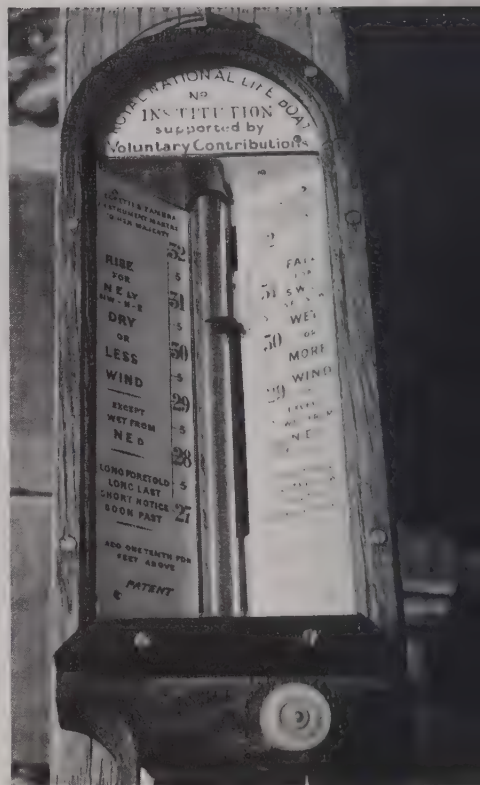 ROYAL NATIONAL LIFE BOAT
No
INSTITUTION
supported by
Voluntary Contributions
& ZAMBRA
INSTRUMENT MAKERS
TO HER MAJESTY
32
RISE
FOR
N E LY
NW-N-E
DRY
OR
LESS
WIND
EXCEPT
WET FROM
N E D
LONG FORETOLD
LONG LAST
SHORT NOTICE
SOON PAST
ADD ONE TENTH FOR
FEET ABOVE
PATENT
5
31
5
30
5
29
5
28
5
27
FALL
S W
WET
OR
MORE
WIND
WET FROM
N E
31
30
29